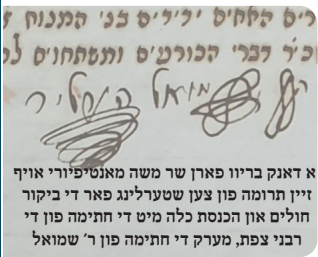 האחים ידידים בני המנוח
דברי הכורעים ומשתחוים
א דאנק בריוו פארן שר משה מאנטיפיורי אויף
זיין תרומה פון צען שטערלינג פאר די ביקור
חולים און הכנסת כלה מיט די חתימה פון די
רבני צפת, מערק די חתימה פון ר׳ שמואל